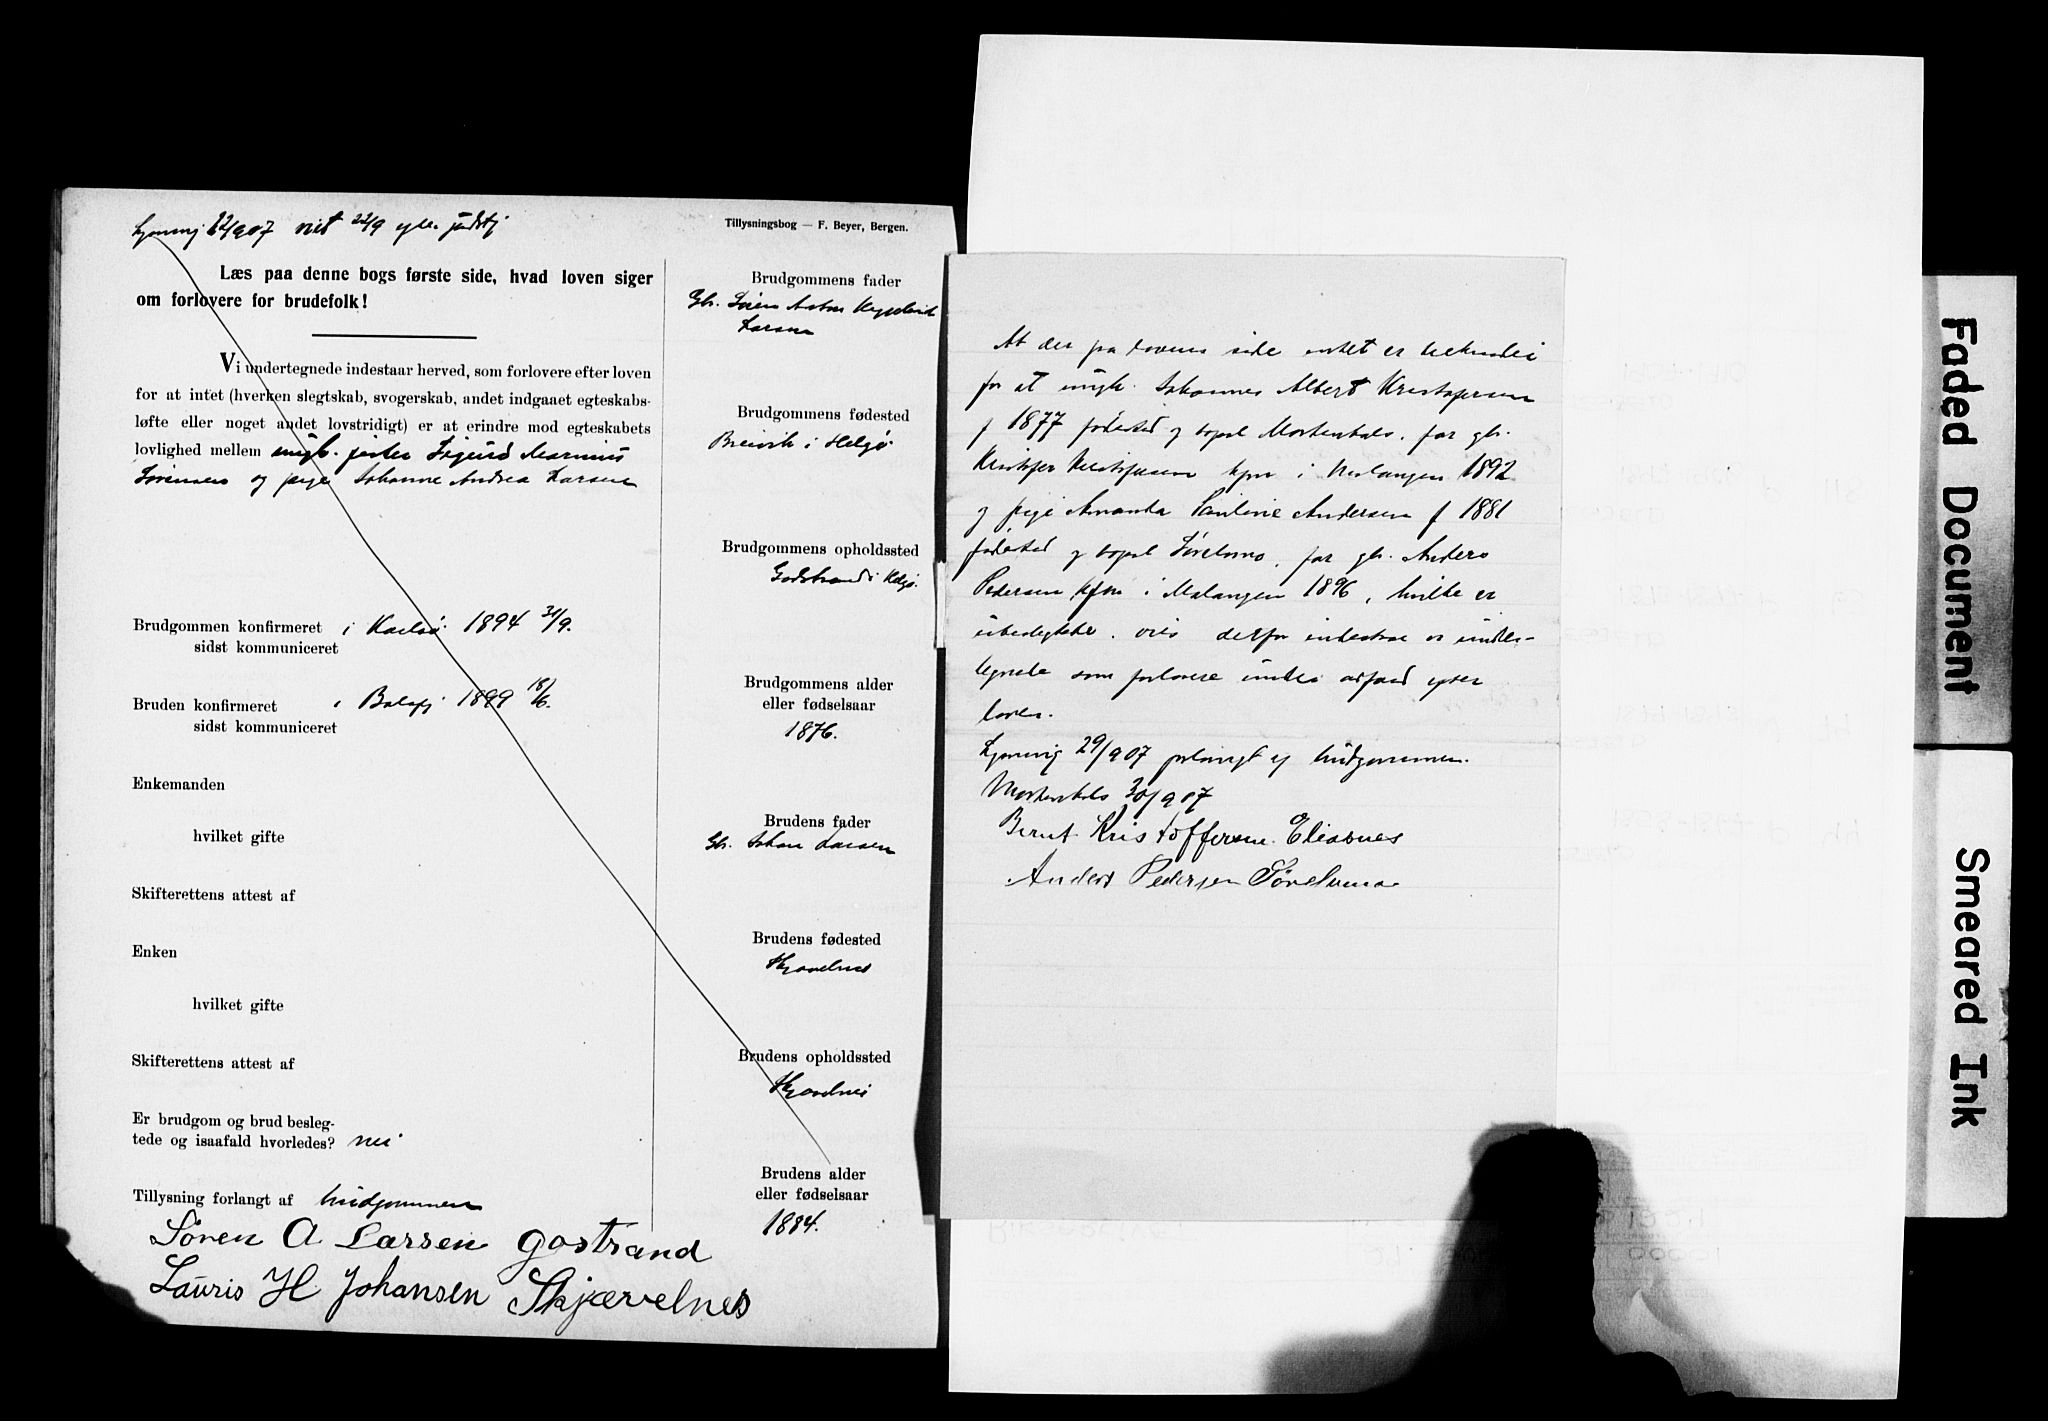 22/9 07 vist 22/9 efter
Tillysningsbog — F. Beyer, Bergen.
Læs paa denne bogs første side, hvad loven siger
om forlovere for brudefolk!
Vi undertegnede indestaar herved, som forlovere efter loven
for at intet (hverken slegtskab, svogerskab, andet indgaaet egteskabs-
løfte eller noget andet lovstridigt) er at erindre mod egteskabets
lovlighed mellem ungk. fisker Sigurd Marinius
Sørensen og pige Johanne Andrea Larsen
Brudgommen konfirmeret i Karlsø 1894 31/9.
sidst kommuniceret
Bruden konfirmeret i Balsfj 1899 18/6.
sidst kommuniceret
Enkemanden
hvilket gifte
Skifterettens attest af
Enken
hvilket gifte
Skifterettens attest af
Er brudgom og brud besleg-
tede og isaafald hvorledes? nei
Tillysning forlangt af brudgommen
Søren A Larsen Gostrand
Lauris H Johansen Skjærvelnes
Brudgommens fader
Gbr. Søren Anton
Larsen
Brudgommens fødested
Breivik i Helgø
Brudgommens opholdssted
Godstrand i Helgø.
Brudgommens alder
eller fødselsaar
1876.
Brudens fader
Gbr. Johan Larsen
Brudens fødested
Skjavelnes
Brudens opholdssted
Skjavelnes
Brudens alder
eller fødselsaar
1884.
At der fra lovens side intet er til hinder
for at ungk. Johannes Albert Kristofersen
f 1877 fødested og bopæl Mortenhals, far gbr.
Kristofer Kristofersen kfm i Malangen 1892
og pige Amanda Pauline Andersen f 1881
fødested og bopæl Sørelvmo, far gbr. Anders
Pedersen kfm i Malangen 1896, hvilke er
ubeslegtede, derfor indestaar vi under-
tegnede som forlovere under ansvar efter
loven.
29/9 07 forlangt af brudgommen.
Mortenhals 30/9 07
Bernt Kristoffersen Eliasnes
Anders Pedersen Sørelvmo
Faded Document
Smeared Ink